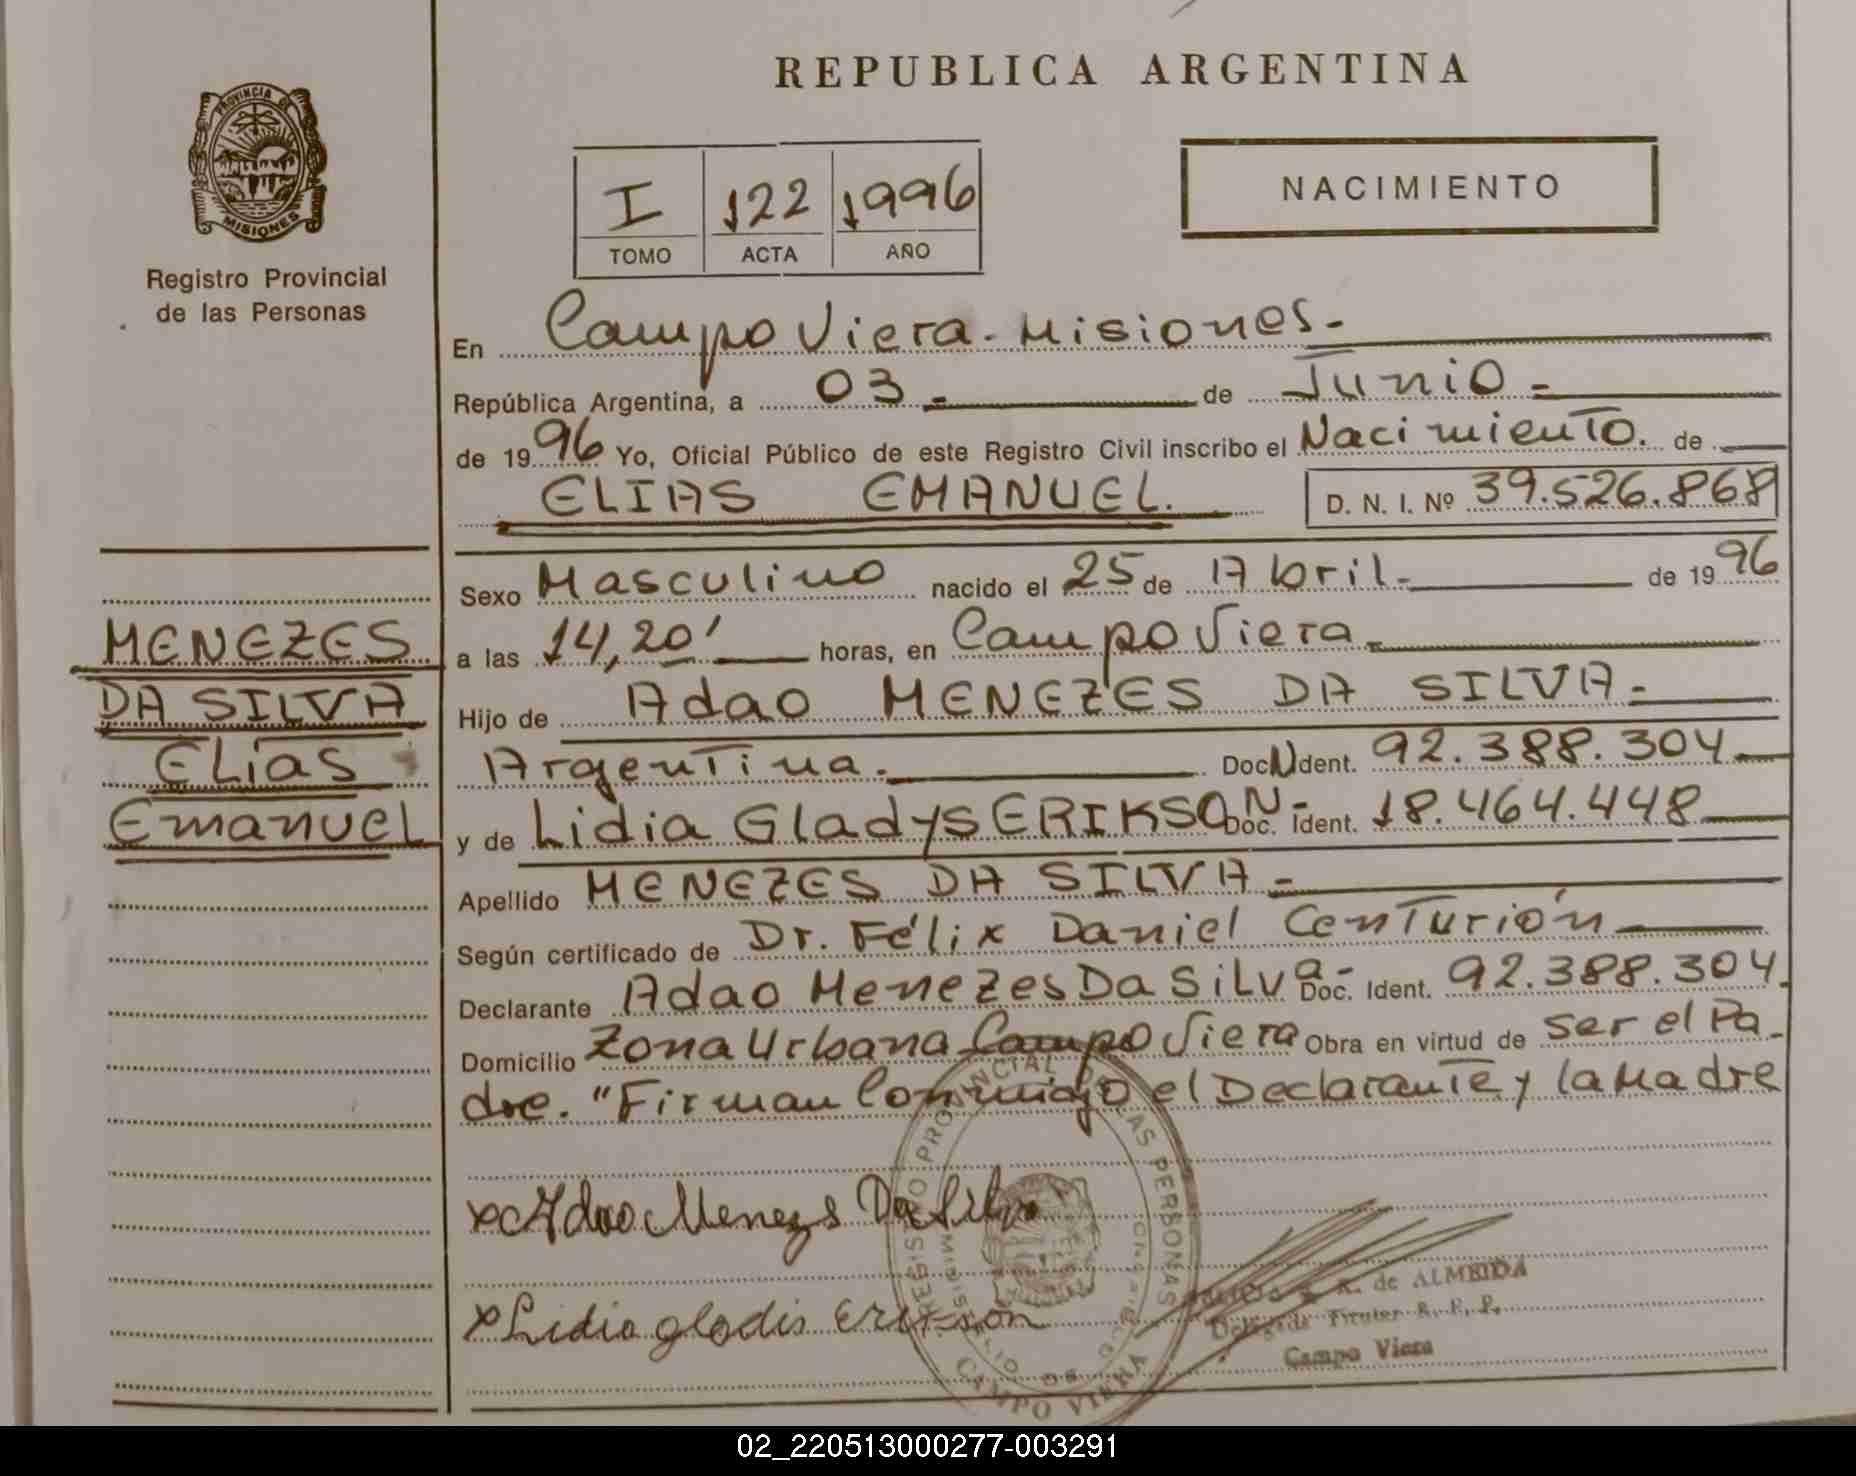 PROVINCIA DE
MISIONES
Registro Provincial
de las Personas
MENEZES
DA SILVA
Elias
Emanuel
REPUBLICA ARGENTINA
I 122 1996
TOMO ACTA AÑO
NACIMIENTO
En Campo Viera - Misiones.-
República Argentina, a 03.- de Junio.-
de 1996 Yo, Oficial Público de este Registro Civil inscribo el Nacimiento. de
ELIAS EMANUEL. D. N. I. Nº 39.526.868
Sexo Masculino nacido el 25 de Abril.- de 1996
a las 14,20' horas, en Campo Viera.-
Hijo de Adao MENEZES DA SILVA.-
Argentina.- Doc. Ident. 92.388.304
y de Lidia Gladys ERIKSON.- Doc. Ident. 18.464.448
Apellido MENEZES DA SILVA.-
Según certificado de Dr. Félix Daniel Centurión
Declarante Adao Menezes Da Silva.- Doc. Ident. 92.388.304.
Domicilio Zona Urbana Campo Viera Obra en virtud de ser el Pa-
dre. "Firman Conmigo el Declarante y la Madre
x Adao Menezs Da Silva
x Lidia gladis Erikson
REGISTRO PROVINCIAL DE LAS PERSONAS
CAMPO VIERA
de ALMEIDA
Delegada Titular R. P. P.
Campo Viera
02_220513000277-003291